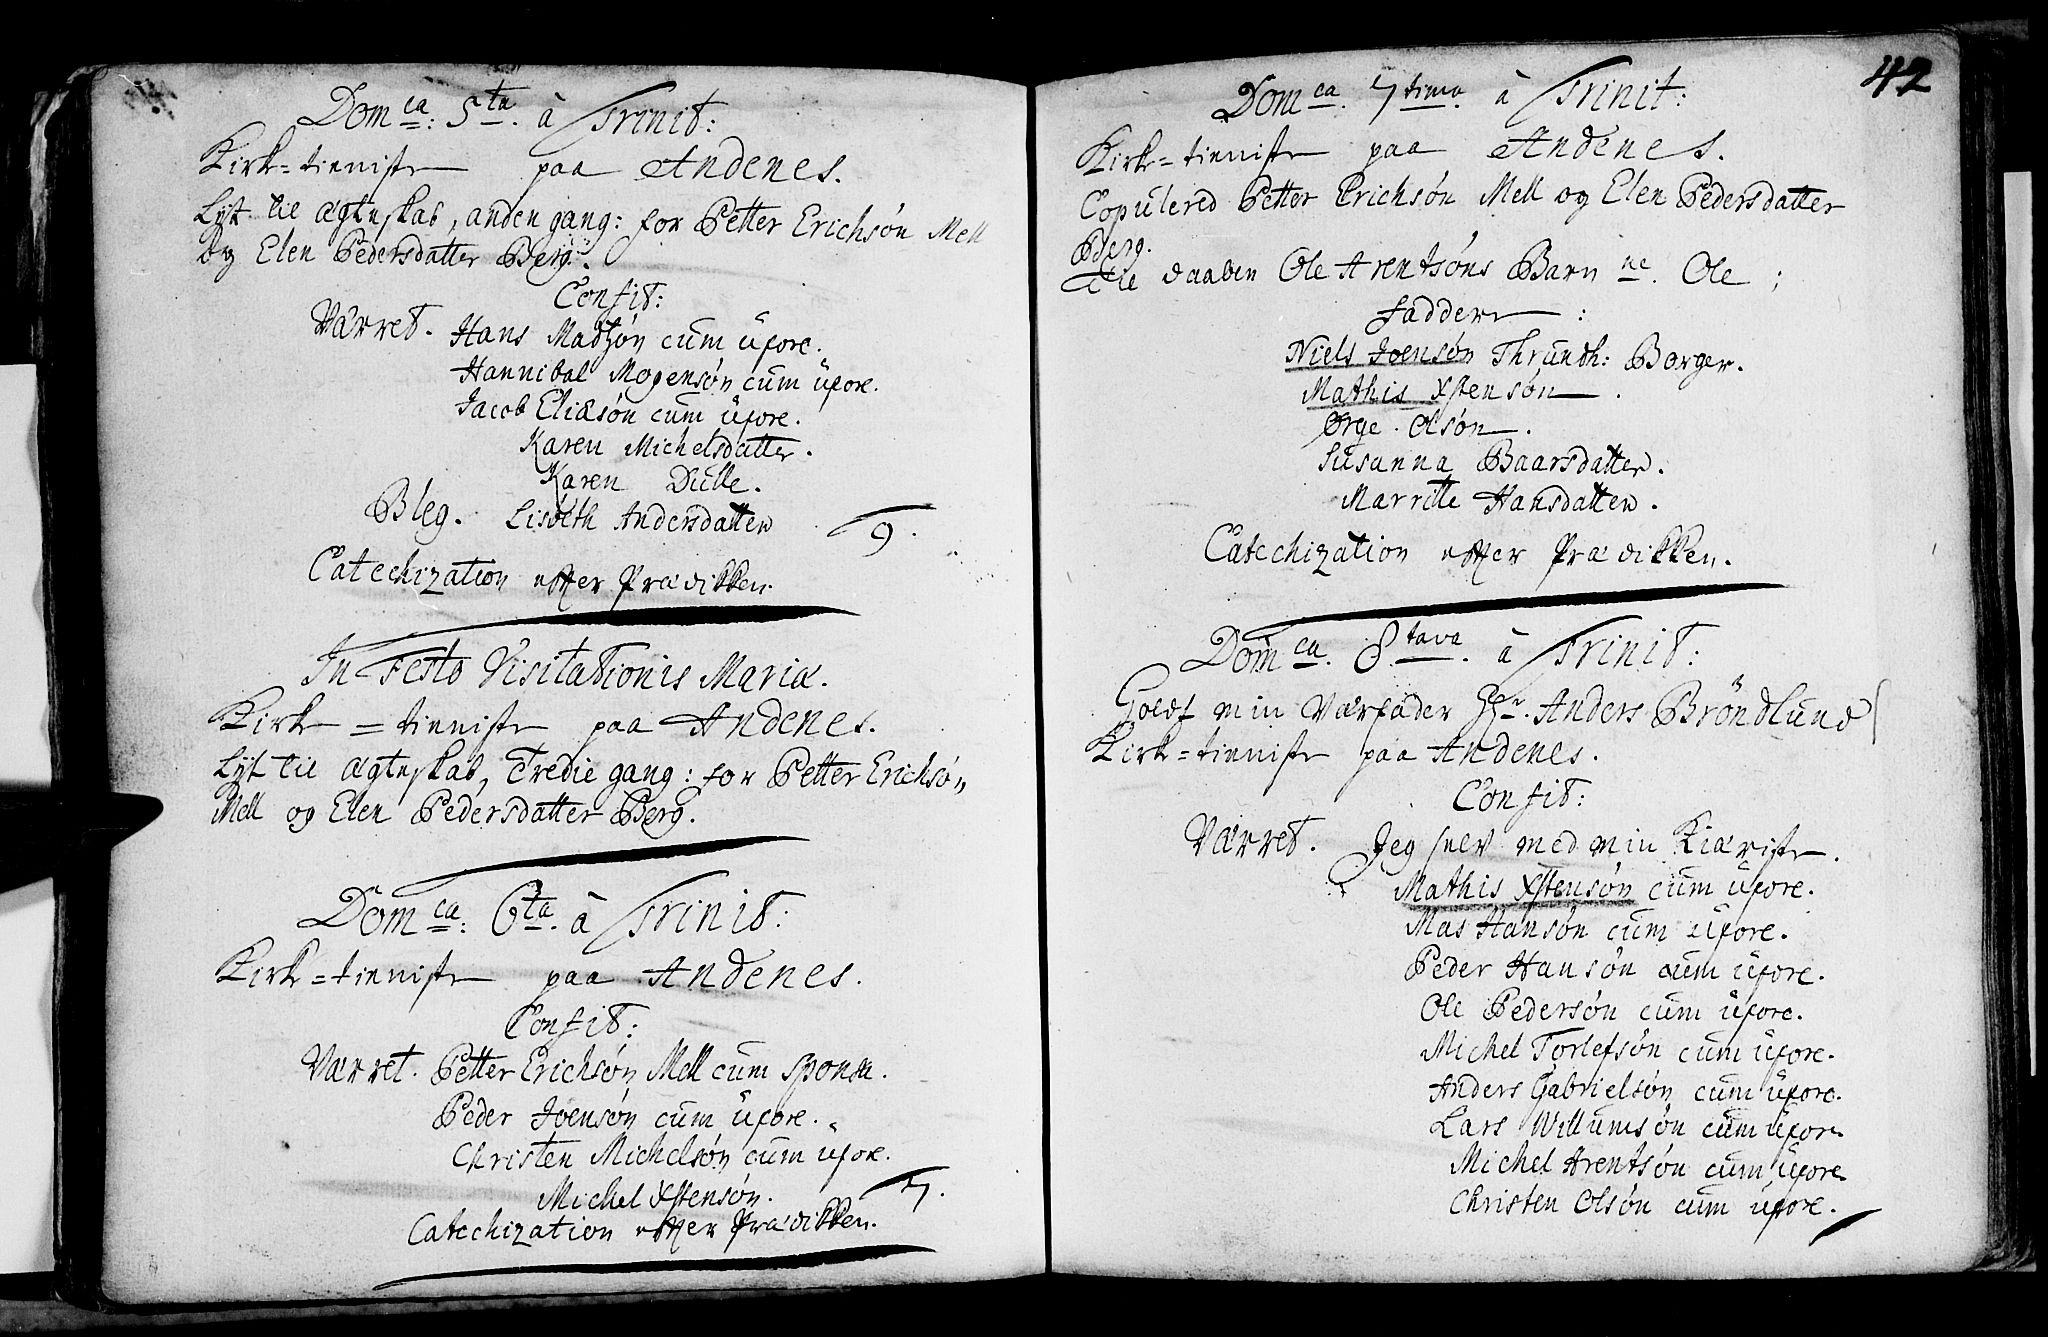 Dom ca: 5 ta. à Trinit:
Kirk=tieniste paa Andenes.
Lyst til Ægteskab, anden gang: for Petter Erichsøn Mell
og Elen Pedersdatter Berg.
Confit:
Værret. Hans Madtzøn cum uxore.
Hannibal Mogensøn cum uxore.
Jacob Eliæsøn cum uxore.
Karen Michelsdatter.
Karen Dulle.
Bleg. Lisbeth Andersdatter 9.
Catechization efter Prædikken.
In Festo Visitationis Mariæ.
Kirk=tieniste paa Andenes.
Lyst til Ægteskab, Tredie gang: for Petter Erichsøn
Mell og Elen Pedersdatter Berg.
Dom ca: 6 ta. à Trinit:
Kirk=tieniste paa Andenes.
Confit:
Værret. Petter Erichsøn Mell cum sponsa.
Peder Joensøn cum uxore.
Christen Michelsøn cum uxore.
Michel Xstensøn. 7.
Catechization efter Prædikken.
42
Dom ca. 7 tima. à Trinit:
Kirk=tieniste paa Andenes.
Copulered Petter Erichsøn Mell og Elen Pedersdatter
Berg.
Til Daaben Ole Arentsøns Barn ne. Ole;
Faddere:
Niels Joensøn Thrundh: Borger.
Mathis Xstensøn.
Ørge Olsøn.
Susanna Baarsdatter.
Marritte Hansdatter.
Catechization efter Prædikken.
Dom ca. 8 tava. à Trinit:
Goldt min Værfader Hr. Anders Bröndlund
Kirk=tieniste paa Andenes.
Confit:
Værret. Jeg selv med min Kiæriste.
Mathis Xstensøn cum uxore.
Mas Hansøn cum uxore.
Peder Hansøn cum uxore.
Ole Pedersøn cum uxore.
Michel Torlefsøn cum uxore.
Anders Gabrielsøn cum uxore.
Lars Willumsøn cum uxore.
Michel Arentsøn cum uxore.
Christen Olsøn cum uxore.